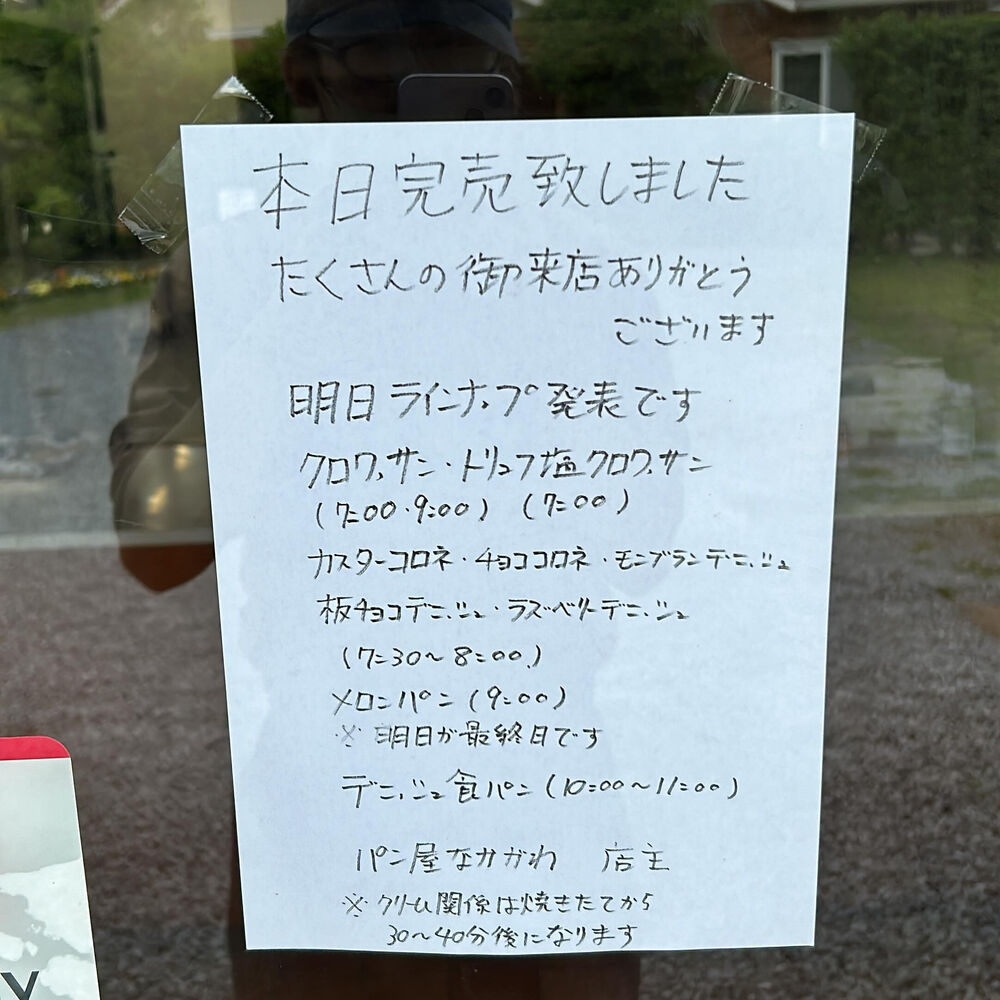 本日完売致しました
たくさんの御来店ありがとう
ございます
明日ラインナップ発表です
クロワッサン・トリュフ塩クロワッサン
(7:00・9:00) (7:00)
カスターコロネ・チョココロネ・モンブランデニッシュ
板チョコデニッシュ・ラズベリーデニッシュ
(7:30〜8:00)
メロンパン(9:00)
※明日が最終日です
デニッシュ食パン(10:00〜11:00)
パン屋なかがわ 店主
※クリーム関係は焼きたてから
30〜40分後になります
Y